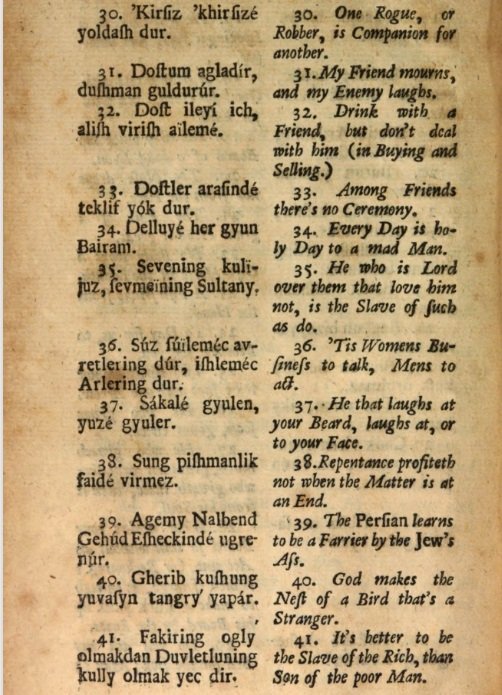 30. 'Kirſiz 'khirſizé
yoldaſh dur.
31. Doſtum agladír,
duſhman guldurúr.
32. Doſt ileyí ich,
aliſh viriſh aïlemé.
33. Doſtler araſindé
teklif yók dur.
34. Delluyé her gyun
Bairam.
35. Sevening kulï-
juz, ſevmeïning Sultany.
36. Súz ſúïleméc av-
retlering dúr, iſhleméc
Arlering dur.
37. Sákalé gyulen,
yuzé gyuler.
38. Sung piſhmanlik
faidé virmez.
39. Agemy Nalbend
Gehúd Eſheckindé ugre-
núr.
40. Gherib kuſhung
yuvaſyn tangry yapár.
41. Fakiring ogly
olmakdan Duvletluning
kully olmak yec dir.
30. One Rogue, or
Robber, is Companion for
another.
31. My Friend mourns,
and my Enemy laughs.
32. Drink with a
Friend, but don't deal
with him (in Buying and
Selling.)
33. Among Friends
there's no Ceremony.
34. Every Day is ho-
ly Day to a mad Man.
35. He who is Lord
over them that love him
not, is the Slave of ſuch
as do.
36. 'Tis Womens Bu-
ſineſs to talk, Mens to
act.
37. He that laughs at
your Beard, laughs at, or
to your Face.
38. Repentance profiteth
not when the Matter is at
an End.
39. The Perſian learns
to be a Farrier by the Jew's
Aſs.
40. God makes the
Neſt of a Bird that's a
Stranger.
41. It's better to be
the Slave of the Rich, than
Son of the poor Man.